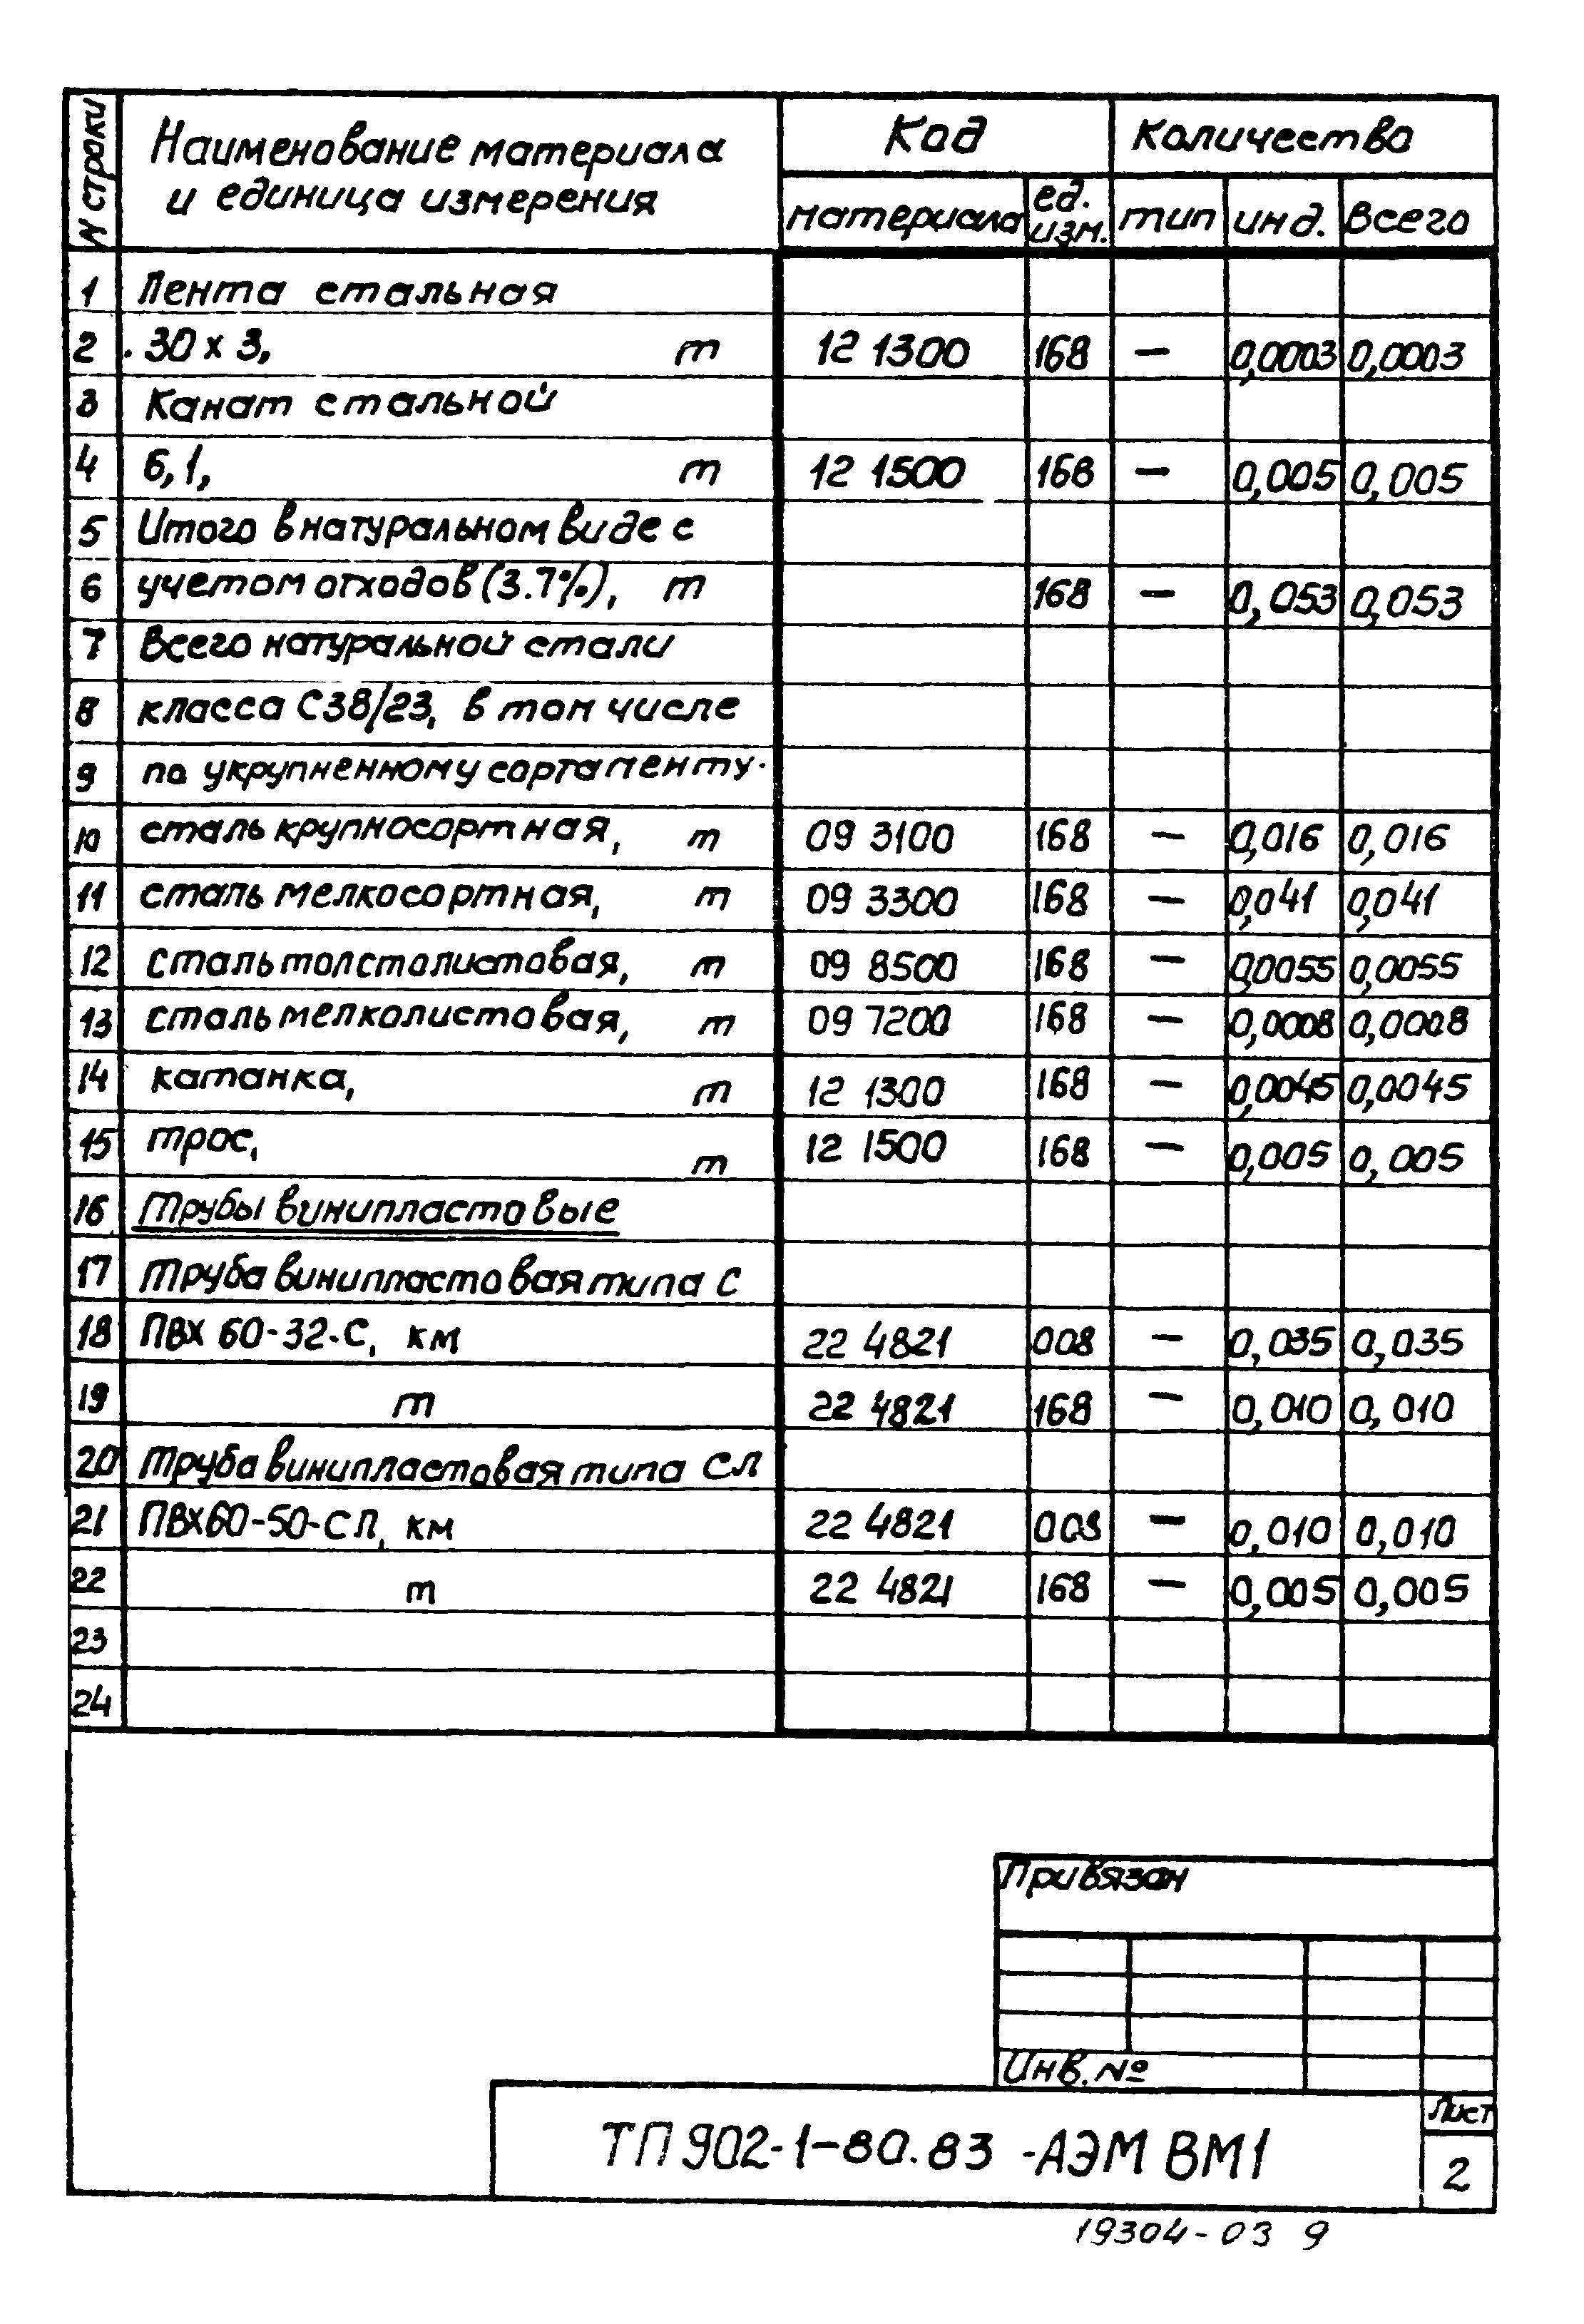 N строки Наименование материала Код Количество
и единица измерения материала ед. изм. тип инд. Всего
1 Лента стальная
2 . 30 х 3, т 12 1300 168 — 0,0003 0,0003
3 Канат стальной
4 6,1, т 12 1500 168 — 0,005 0,005
5 Итого в натуральном виде с
6 учетом отходов (3.7%), т 168 — 0,053 0,053
7 Всего натуральной стали
8 класса С38/23, в том числе
9 по укрупненному сортаменту·
10 сталь крупносортная, т 09 3100 168 — 0,016 0,016
11 сталь мелкосортная, т 09 3300 168 — 0,041 0,041
12 сталь толстолистовая, т 09 8500 168 — 0,0055 0,0055
13 сталь мелколистовая, т 09 7200 168 — 0,0008 0,0008
14 катанка, т 12 1300 168 — 0,0045 0,0045
15 трос, т 12 1500 168 — 0,005 0,005
16 Трубы винипластовые
17 Труба винипластовая типа С
18 ПВХ 60-32-С, км 22 4821 008 — 0,035 0,035
19 т 22 4821 168 — 0,010 0,010
20 Труба винипластовая типа СЛ
21 ПВХ60-50-СЛ, км 22 4821 008 — 0,010 0,010
22 т 22 4821 168 — 0,005 0,005
23
24
Привязан
Инв. №
ТП 902-1-80.83 -АЭМ ВМ1
Лист
2
19304-03 9